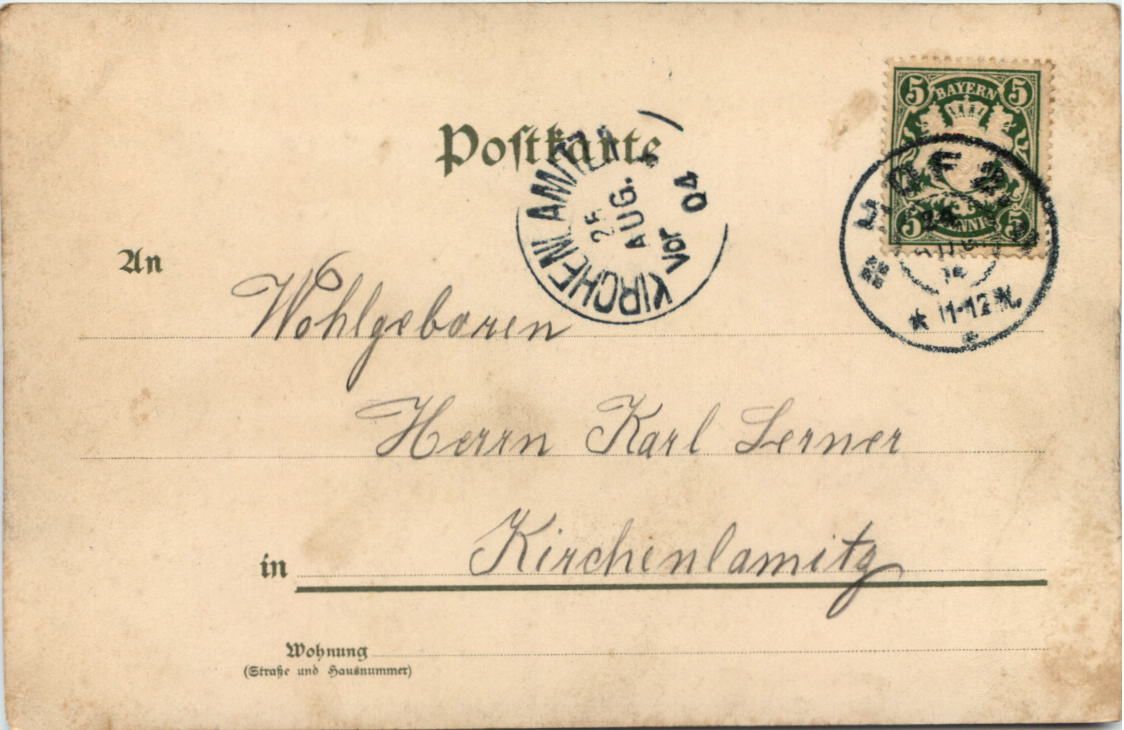 5 BAYERN 5
Postkarte
KIRCHENLAMITZ
25
AUG.
Vor 04
HOF 2
11-12
5 PFENNIG 5
An
Wohlgeboren
Herrn Karl Lerner
in Kirchenlamitz
Wohnung
(Straße und Hausnummer)